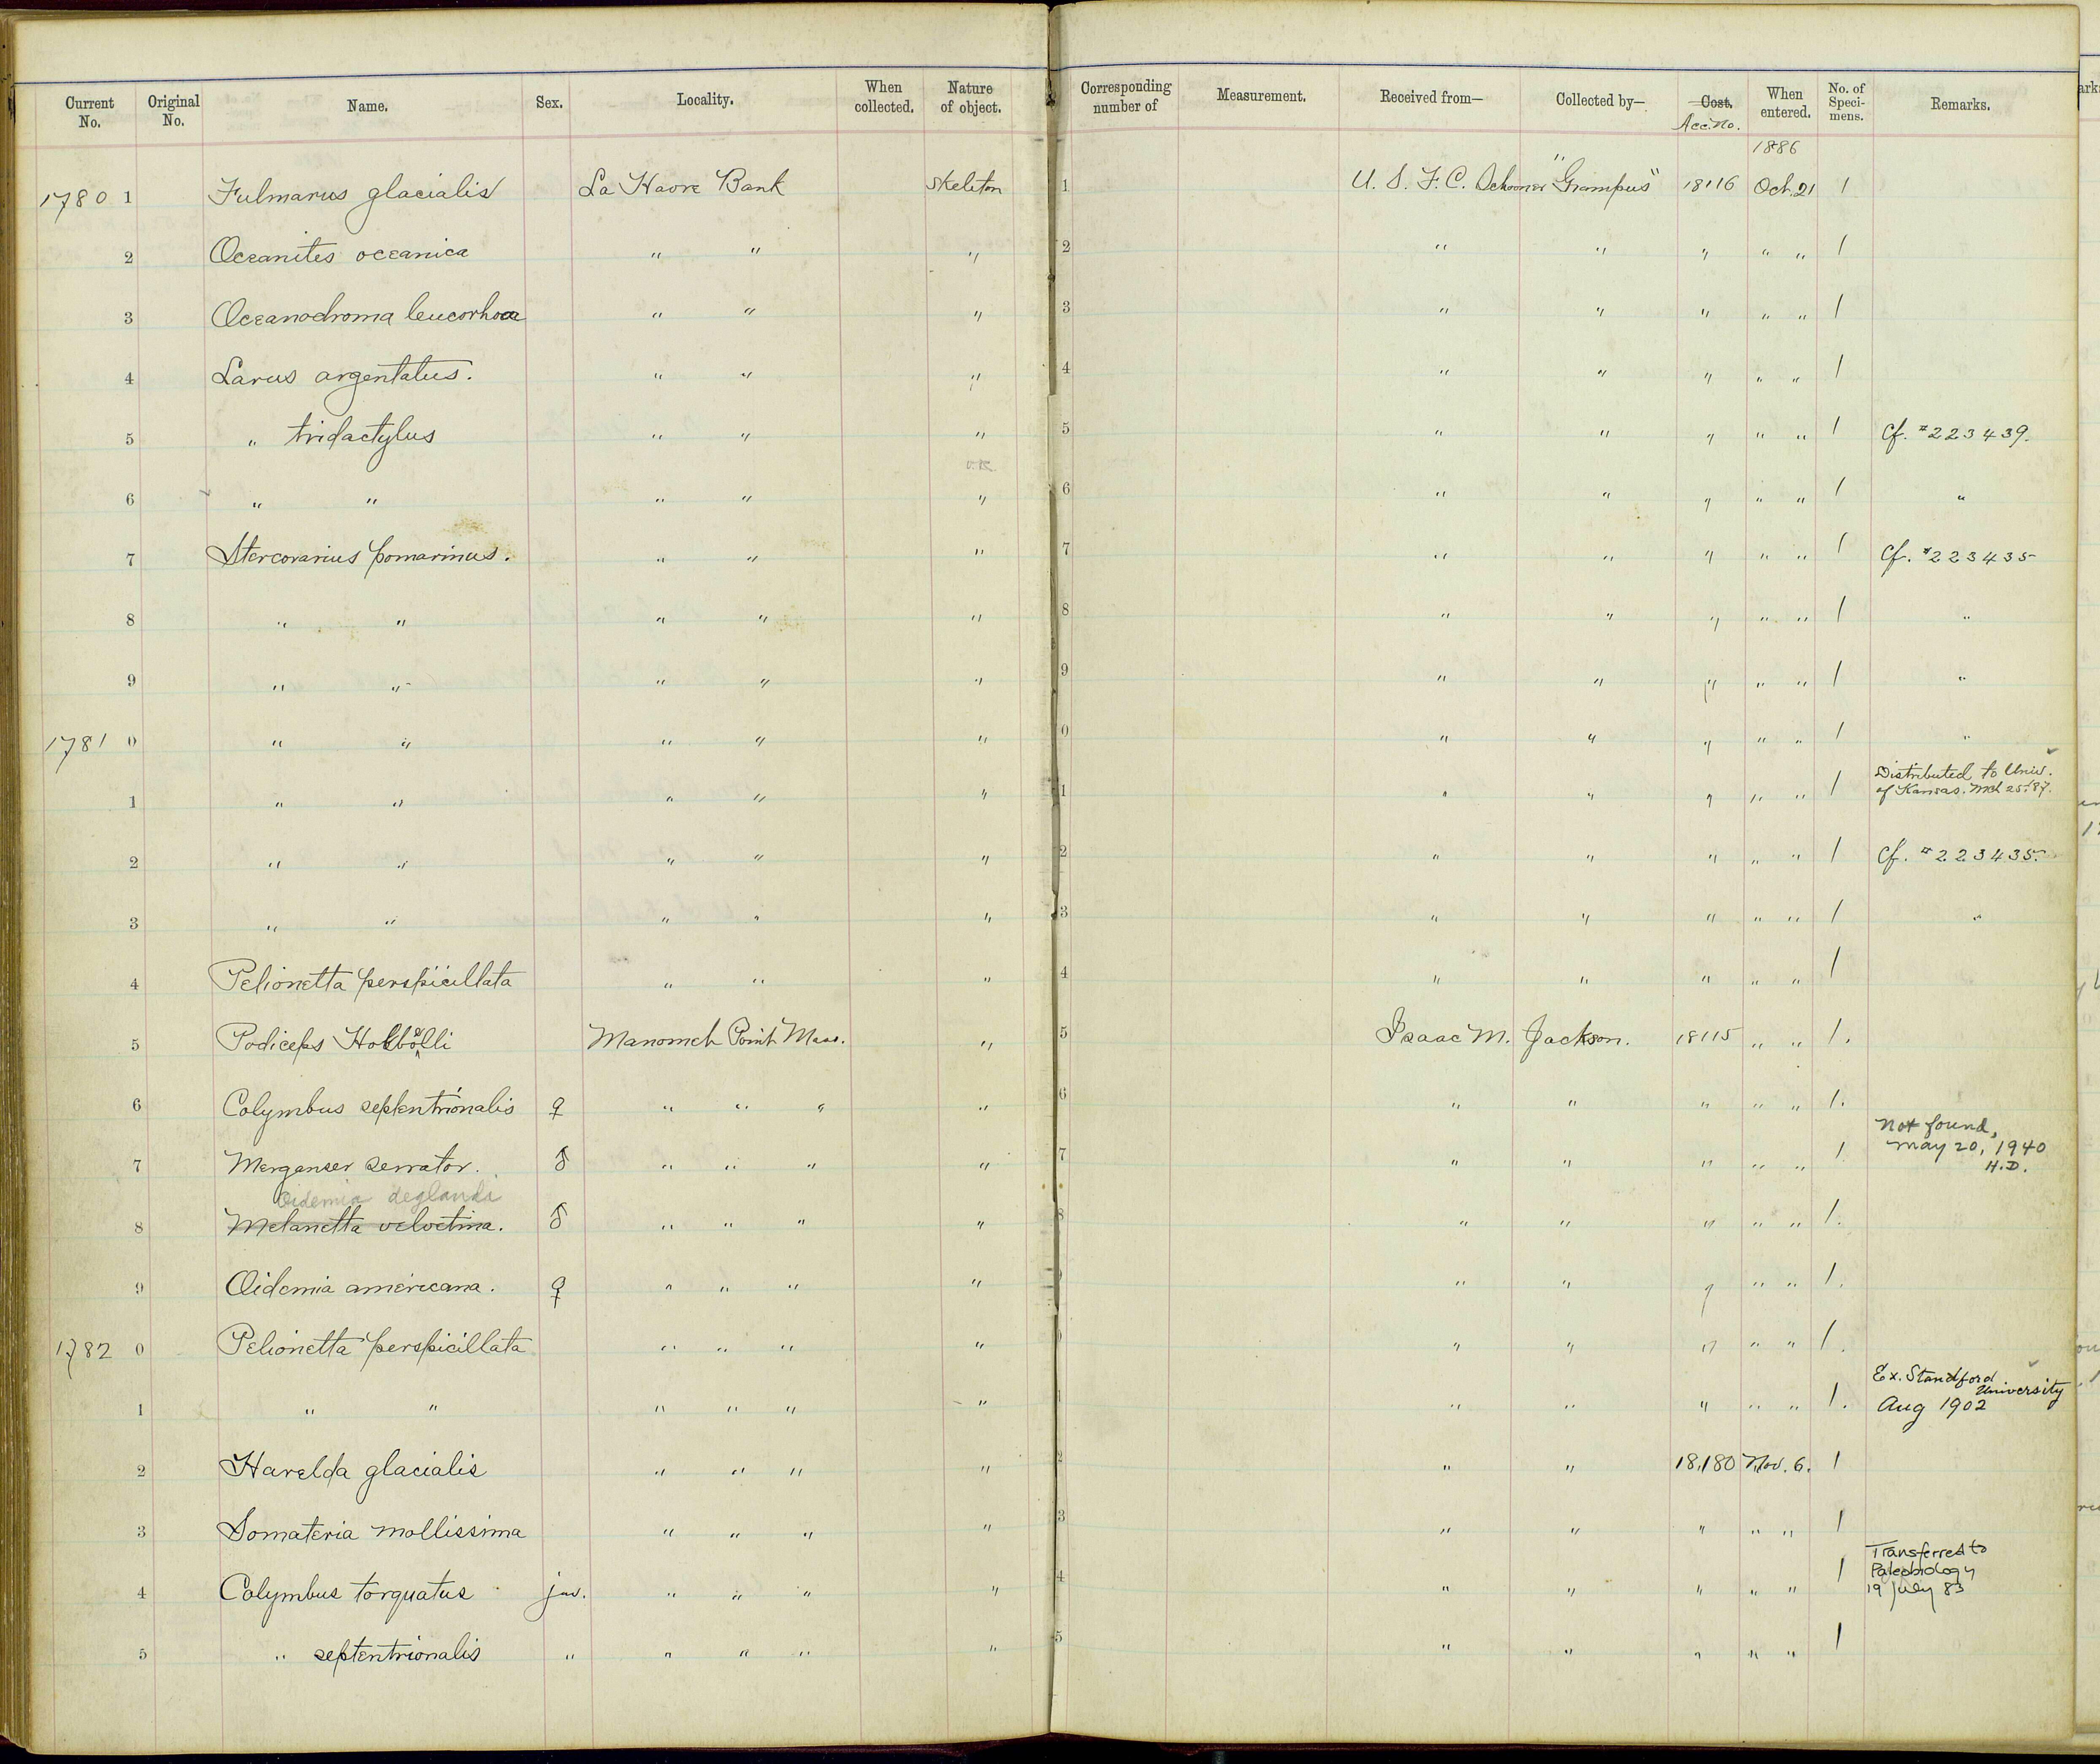 Current No. Original No. Name. Sex. Locality. When collected. Nature of object. Corresponding number of Measurement. Received from— Collected by— Cost. Acc. No. When entered. No. of Speci-mens. Remarks.
1886
1780 1 Fulmarus glacialis La Havre Bank Skeleton 1 U. S. F. C. Schooner "Grampus" 18116 Oct. 21 1
2 Oceanites oceanica " " " 2 " " " " " 1
3 Oceanodroma leucorhoa " " " 3 " " " " " 1
4 Larus argentatus. " " " 4 " " " " " 1
5 " tridactylus " " " 5 " " " " " 1 Cf. #223439.
6 " " " " " 6 " " " " " 1 "
7 Stercorarius pomarinus. " " " 7 " " " " " 1 Cf. #223435
8 " " " " " 8 " " " " " 1 "
9 " " " " " 9 " " " " " 1 "
1781 0 " " " " " 0 " " " " " 1 "
1 " " " " " 1 " " " " " 1 Distributed to Univ. of Kansas. Mch 25. '87.
2 " " " " " 2 " " " " " 1 Cf. #223435.
3 " " " " " 3 " " " " " 1 "
4 Pelionetta perspicillata " " " 4 " " " " " 1
5 Podiceps Holbölli Manomet Point Mass. " 5 Isaac M. Jackson. 18115 " " 1.
6 Colymbus septentrionalis ♀ " " " " 6 " " " " " 1.
7 Merganser serrator. ♂ " " " " 7 " " " " " 1 Not found, May 20, 1940 H.D.
Oidemia deglandi
8 Melanetta velvetina. ♂ " " " " 8 " " " " " 1.
9 Oidemia americana. ♀ " " " " " " " " " 1.
1782 0 Pelionetta perspicillata " " " " " " " " " 1.
1 " " " " " " 1 " " " " " 1. Ex. Standford University Aug 1902
2 Harelda glacialis " " " " 2 " " 18,180 Nov. 6. 1
3 Somateria mollissima " " " " 3 " " " " " 1
4 Colymbus torquatus juv. " " " " 4 " " " " " 1 Transferred to Paleobiology 19 July 83
5 " septentrionalis " " " " " 5 " " " " " 1